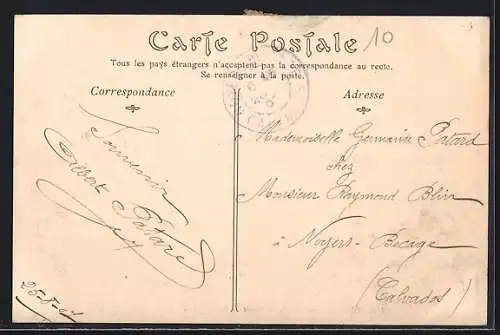 10
Carte Postale
Tous les pays étrangers n'acceptent pas la correspondance au recto.
Se renseigner à la poste.
Correspondance
Adresse
Souvenir
Gilbert Patard
Mademoiselle Germaine Patard
chez
Monsieur Raymond Blin
à Noyers-Bocage
(Calvados)